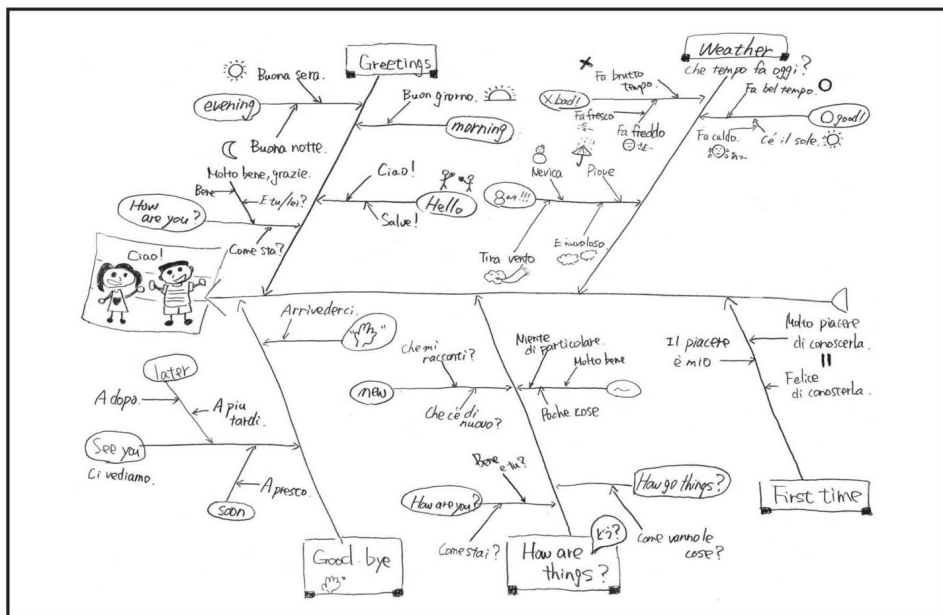 Greetings
Buona sera.
evening
Buona notte.
Buon giorno.
morning
Molto bene, grazie.
Bene
E tu/lei?
How
are you?
Come sta?
Ciao!
Hello
Salve!
Ciao!
Weather
che tempo fa oggi?
Fa brutto
tempo.
X bad!
Fa fresco
Fa freddo
Fa bel tempo.
O good!
Fa caldo.
C'é il sole.
Nevica
Piove
!!!
Tira vento
E nuvoloso.
Arrivederci.
later
A dopo.
A piu
tardi.
See you
Ci vediamo.
A presto.
soon
Good.bye
Che mi
racconti?
new
Che cé di
nuovo?
Niente
di particolare.
Molto bene
~
Poche cose
Bene
e tu?
How are you?
Come stai?
How go things?
Come vanno le
cose?
How are
things?
どう?
Molto piacere
di conoscerla.
Il piacere
è mio
Felice
di conoscerla.
First time